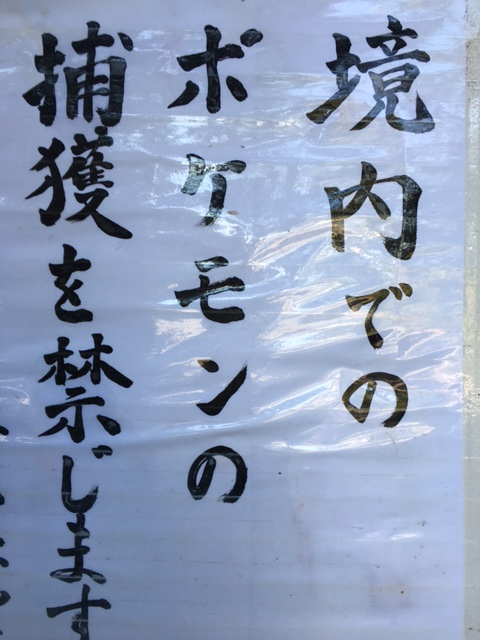 境内での
ポケモンの
捕獲を禁じます